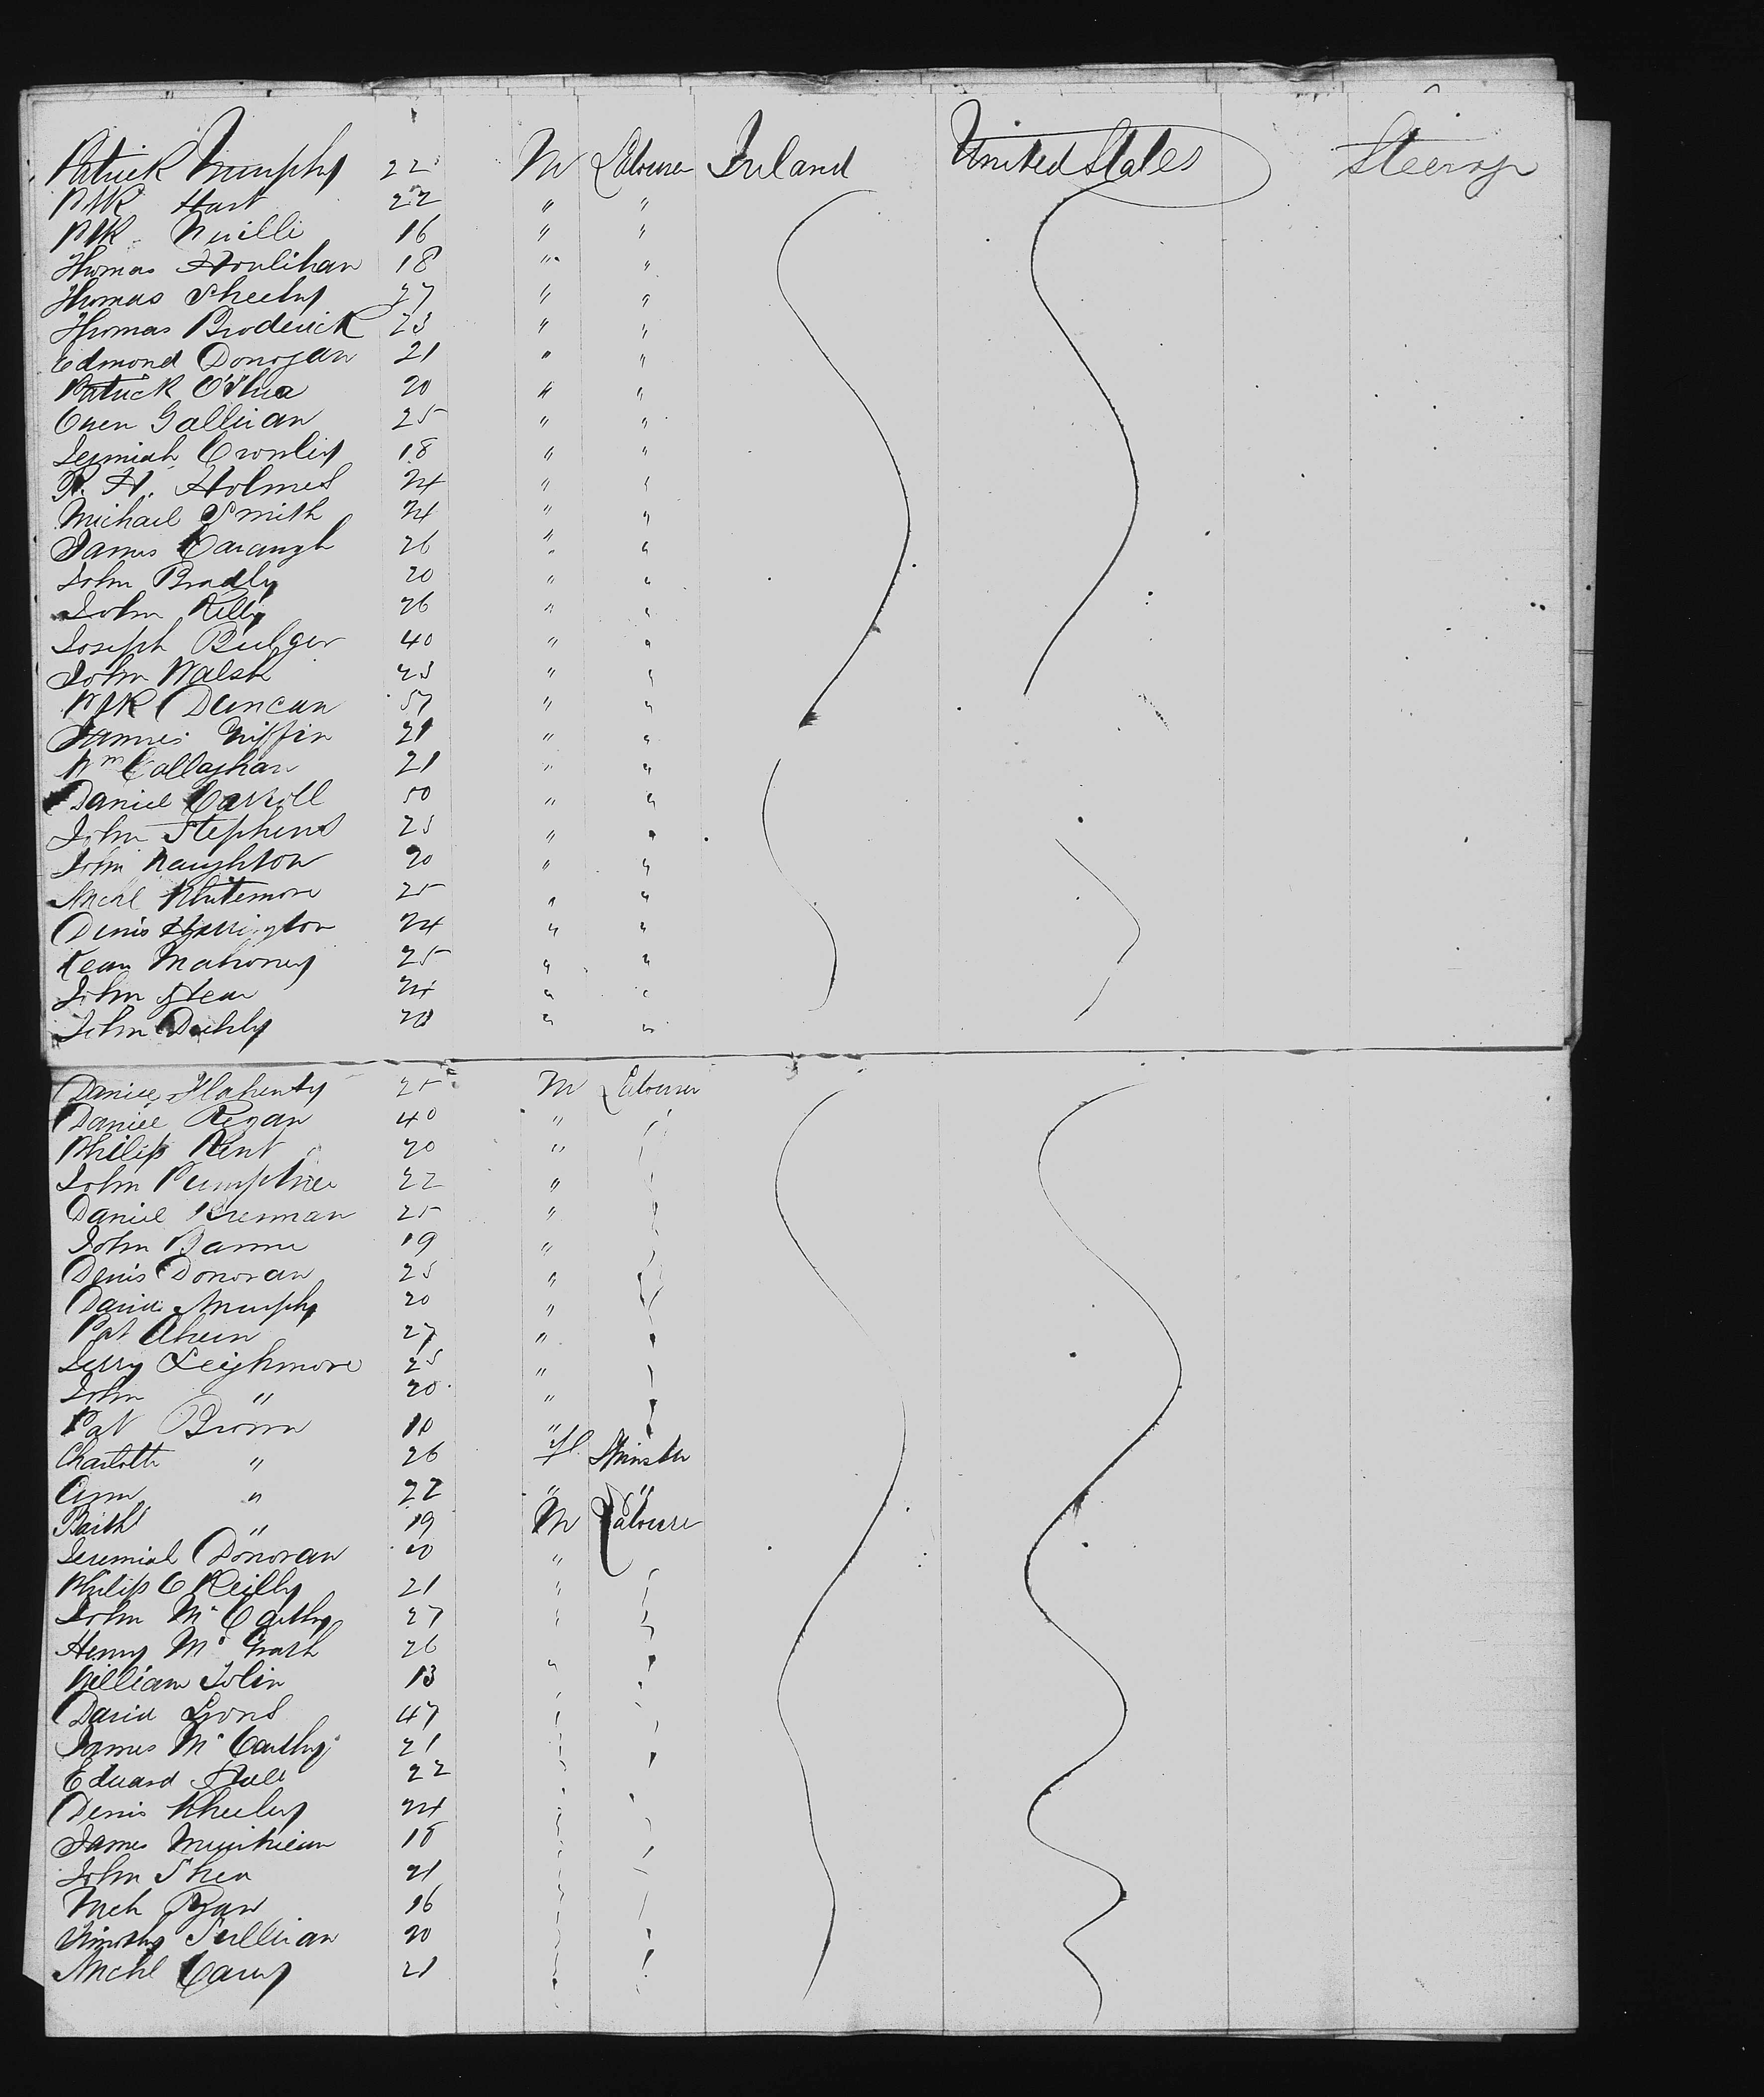 Patrick Murphy 22 M Labourer Ireland United States Steerage
Patk Hart 22 " "
Patk Neville 16 " "
Thomas Houlihan 18 " "
Thomas Sheehy 27 " "
Thomas Broderick 23 " "
Edmond Donogan 21 " "
Patrick O'Shea 20 " "
Owen Gallivan 25 " "
Jeremiah Crowley 18 " "
R. H. Holmes 24 " "
Michael Smith 24 " "
James Cavangh 26 " "
John Bradly 20 " "
John Kelly 26 " "
Joseph Bulger 40 " "
John Walsh 23 " "
Patk Duncan 57 " "
James Griffin 21 " "
Wm Callaghan 21 " "
Daniel Carroll 50 " "
John Stephens 23 " "
John Naughton 20 " "
Michl Whitemore 25 " "
Denis Harrington 24 " "
Jean Mahoney 25 " "
John 24 " "
John 20 " "
Daniel Flaherty 25 M Labourer
Daniel Regan 40 " "
Philip Kent 20 " "
John 22 " "
Daniel Brennan 25 " "
John 19 " "
Denis Donovan 25 " "
David Murphy 20 " "
Pat Ahern 27 " "
Jerry Leighmore 25 " "
John " 20 " "
Pat Brown 10 " "
Charlotte " 26 F Spinster
Ann " 22 " "
" 19 M Labourer
Jeremiah Donovan 20 "
Philip O Reilly 21 "
John Mc Carthy 27 "
Henry Mc Grath 26 "
William Tobin 13
David Lyons 47
James Mc Carthy 21
Edward Hall 22
Denis 24
James 18
John Shea 21
Mich Ryan 16
Timothy Sullivan 20
Michl Carey 21